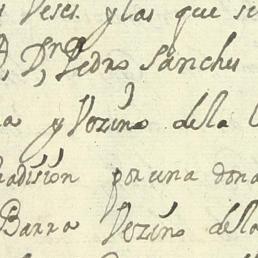 Veses y las que se
D, Dn Pedro Sanches
a y Vezino dela
radision por una dona
Barra Vezino dela